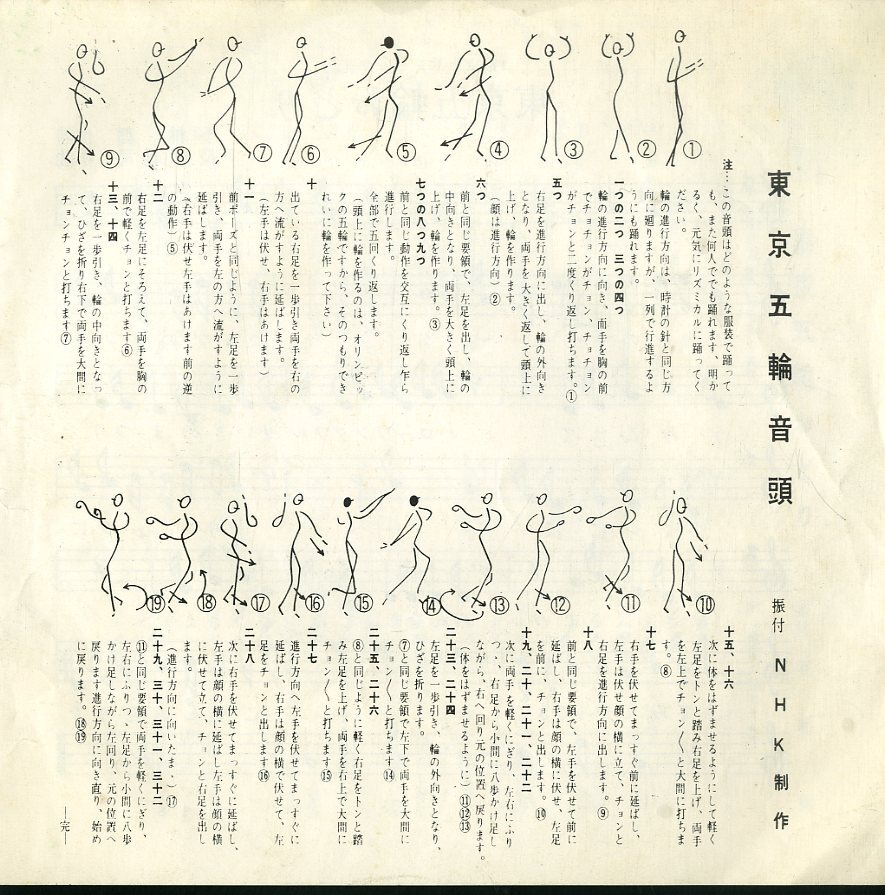 東京五輪音頭
振付 NHK制作
注…この音頭はどのような服装で踊って
も、また何人ででも踊れます、明か
るく、元気にリズミカルに踊ってく
ださい。
輪の進行方向は、時計の針と同じ方
向に廻りますが、一列で行進するよ
うにも踊れます。
一つの二つ 三つの四つ
輪の進行方向に向き、両手を胸の前
でチョチョンがチョン、チョチョン
がチョンと二度くり返し打ちます。①
五つ
右足を進行方向に出し、輪の外向き
となり、両手を大きく返して頭上に
上げ、輪を作ります。
(顔は進行方向)②
六つ
前と同じ要領で、左足を出し、輪の
中向きとなり、両手を大きく頭上に
上げ、輪を作ります。③
七つの八つ九つ
前と同じ動作を交互にくり返し乍ら
進行します。
全部で五回くり返します。
(頭上に輪を作るのは、オリンピッ
クの五輪ですから、そのつもりでき
れいに輪を作って下さい)
十
出ている右足を一歩引き両手を右の
方へ流がすように延ばします。
(左手は伏せ、右手はあけます)
十一
前ポーズと同じように、左足を一歩
引き、両手を左の方へ流がすように
延ばします。
(右手は伏せ左手はあけます前の逆
の動作)⑤
十二
右足を左足にそろえて、両手を胸の
前で軽くチョンと打ちます⑥
十三、十四
右足を一歩引き、輪の中向きとなっ
て、ひざを折り右下で両手を大間に
チョンチョンと打ちます⑦
①
②
③
④
⑤
⑥
⑦
⑧
⑨
十五、十六
次に体をはずませるようにして軽く
左足をトンと踏み右足を上げ、両手
を左上でチョン〱と大間に打ちま
す。⑧
十七
右手を伏せてまっすぐ前に延ばし、
左手は伏せ顔の横に立て、チョンと
右足を進行方向に出します。⑨
十八
前と同じ要領で、左手を伏せて前に
延ばし、右手は顔の横に伏せ、左足
を前に、チョンと出します。⑩
十九、二十、二十一、二十二
次に両手を軽くにぎり、左右にふり
つゝ、右足から小間に八歩かけ足し
ながら、右へ回り元の位置へ戻ります。
(体をはずませるように)⑪⑫⑬
二十三、二十四
左足を一歩引き、輪の外向きとなり、
ひざを折ります。
⑦と同じ要領で左下で両手を大間に
チョン〱と打ちます⑭
二十五、二十六
⑧と同じように軽く右足をトンと踏
み左足を上げ、両手を右上で大間に
チョン〱と打ちます⑮
二十七
進行方向へ左手を伏せてまっすぐに
延ばし、右手は顔の横で伏せて、左
足をチョンと出します⑯
二十八
次に右手を伏せてまっすぐに延ばし、
左手は顔の横に延ばし左手は顔の横
に伏せて立て、チョンと右足を出し
ます。
(進行方向に向いたまゝ)⑰
二十九、三十、三十一、三十二
⑪と同じ要領で両手を軽くにぎり、
左右にふりつゝ左足から小間に八歩
かけ足しながら左回り、元の位置へ
戻ります進行方向に向き直り、始め
に戻ります。⑱⑲
―完―
⑩
⑪
⑫
⑬
⑭
⑮
⑯
⑰
⑱
⑲